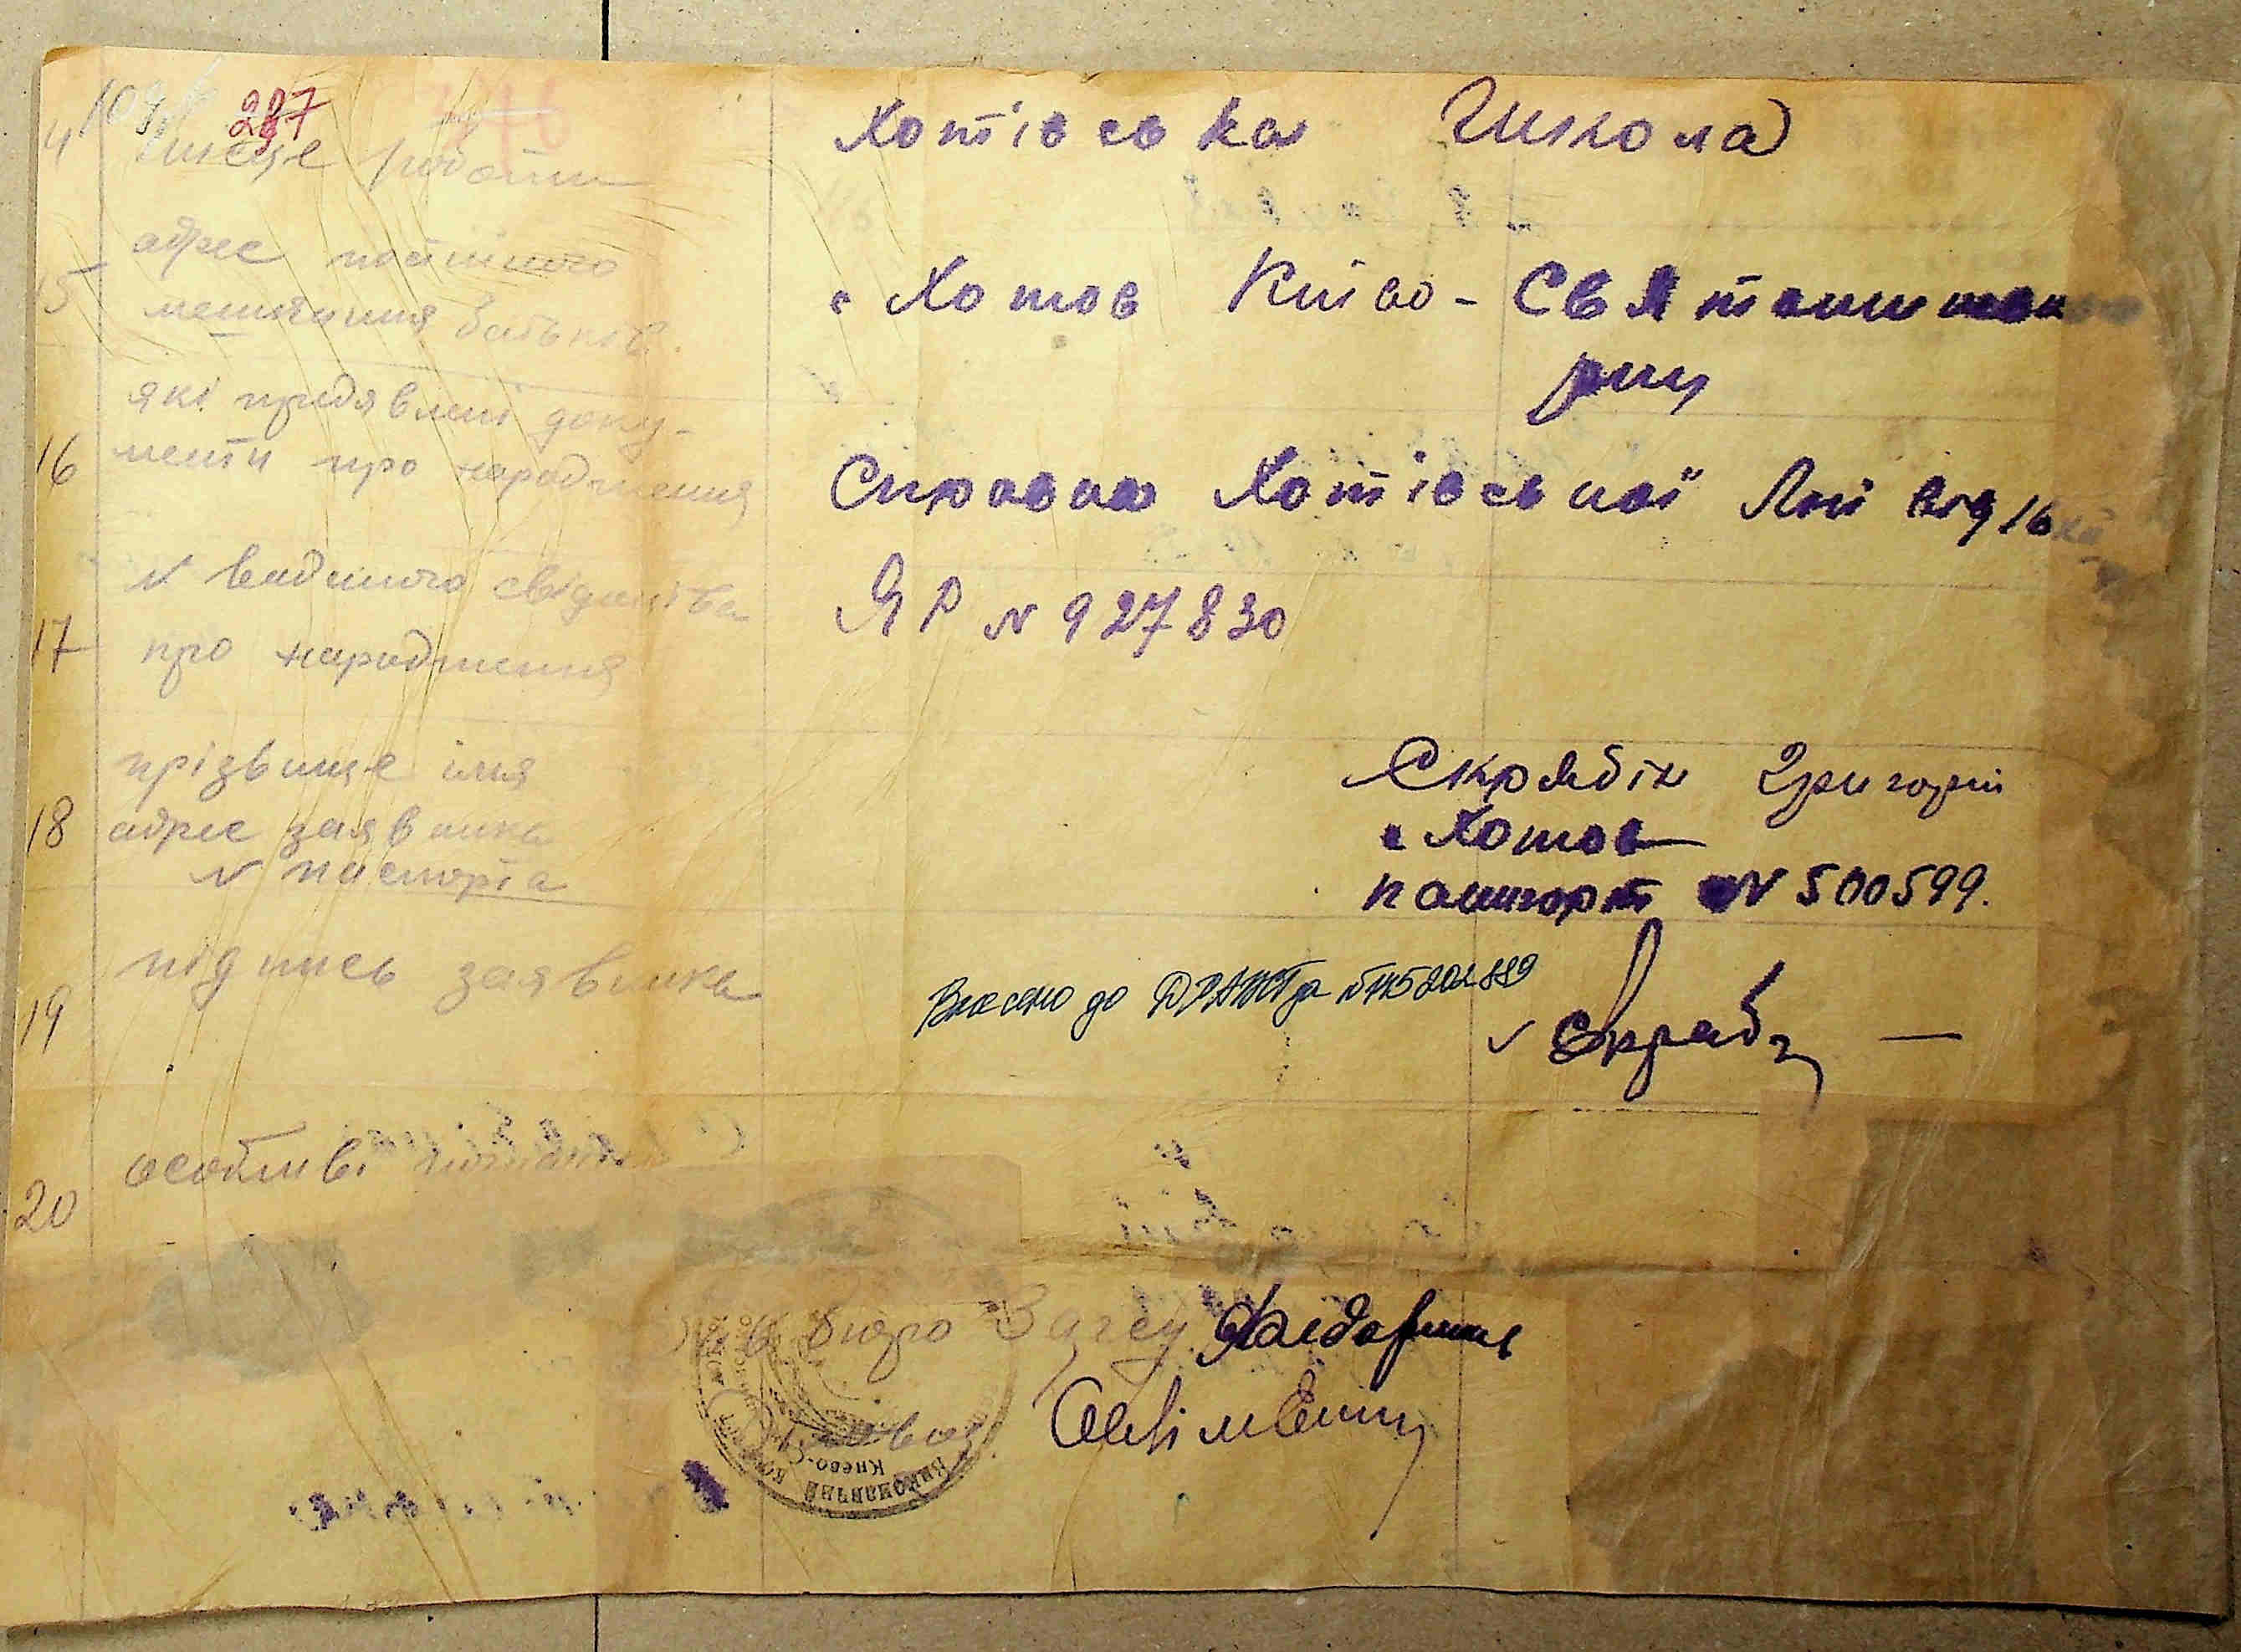 287
4 місце роботи
Хотівська Школа
15 адрес постійного
мешкання батьків.
с Хотов Київо-Святошинськ
рну
16 які предявлені доку-
менти про народження
Справка Хотівської від 16
17 № виданого свідоцтва
про народження
ЯР № 927830
18 прізвище імя
адрес заявника
№ паспорта
Скрябін Григорій
с Хотов
пашпорт № 500599.
19 підпись заявника
Внесено до ДРАЦСГ
Скряб
20 особливі
бюро Загсу
Києво-С
ВИКОНАВЧИЙ